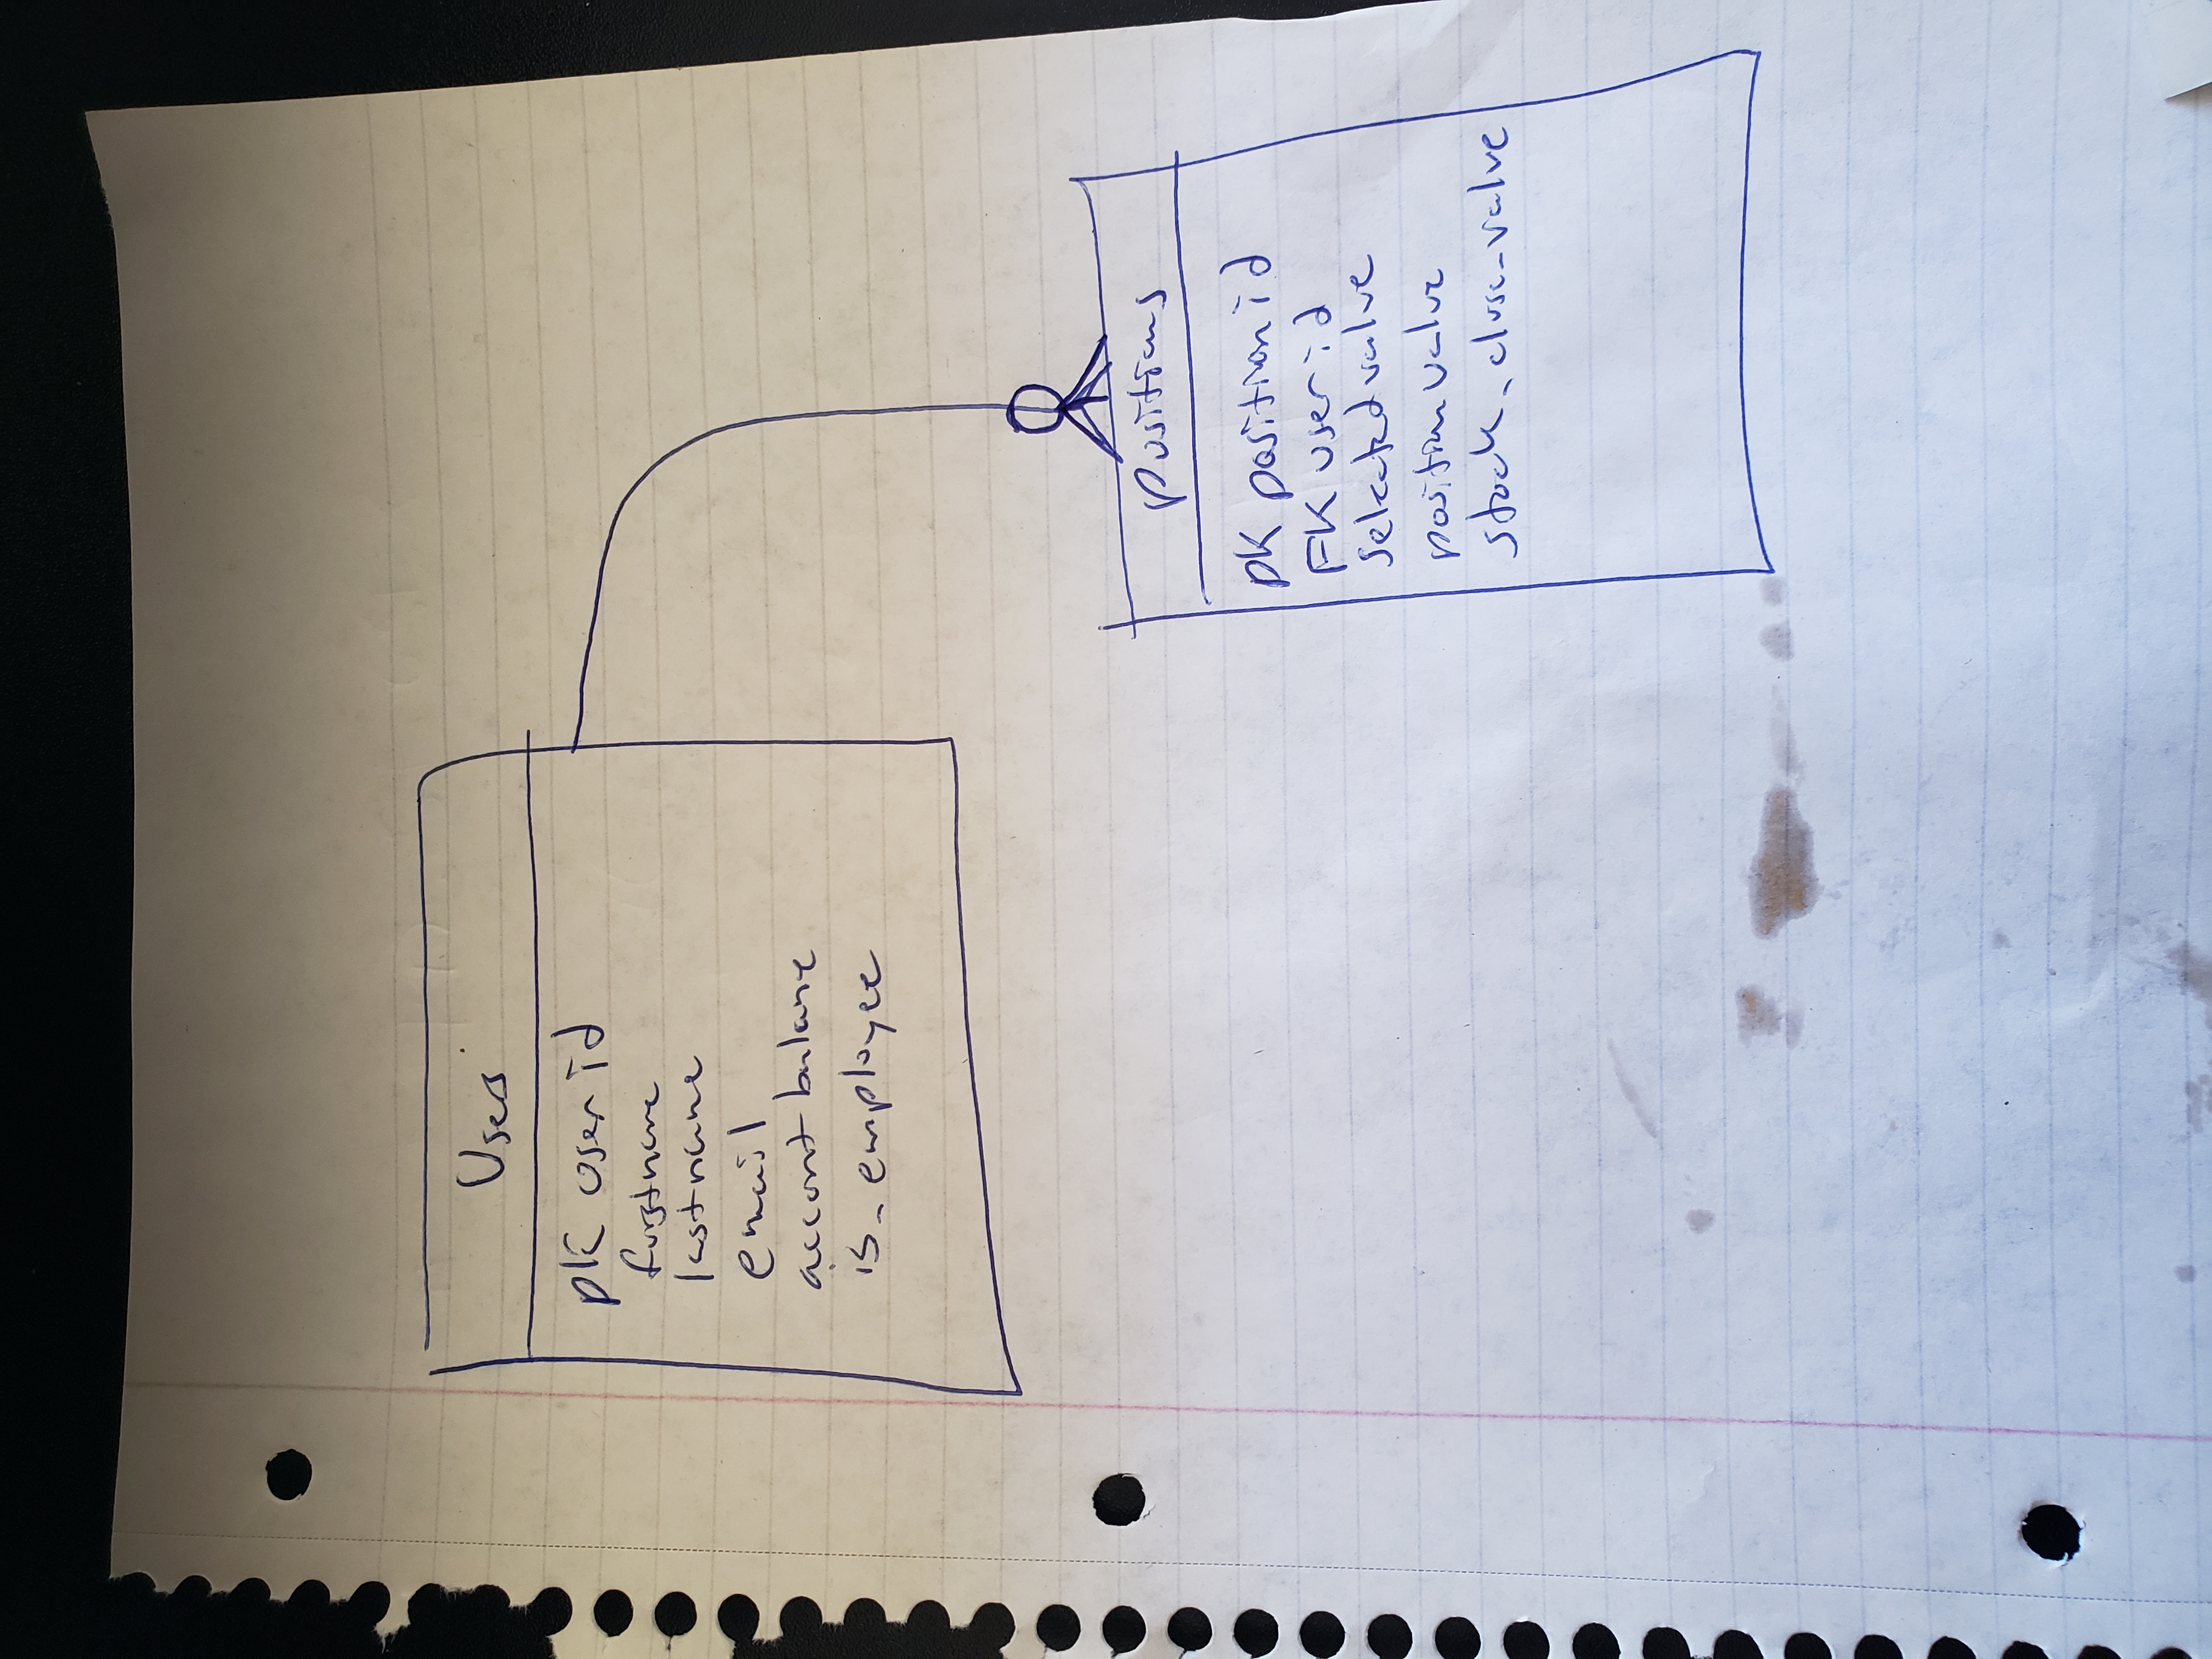 Users
PK user id
firstname
lastname
email
account balance
is_employee
positions
PK position id
FK user id
selected value
position value
stock_close_value